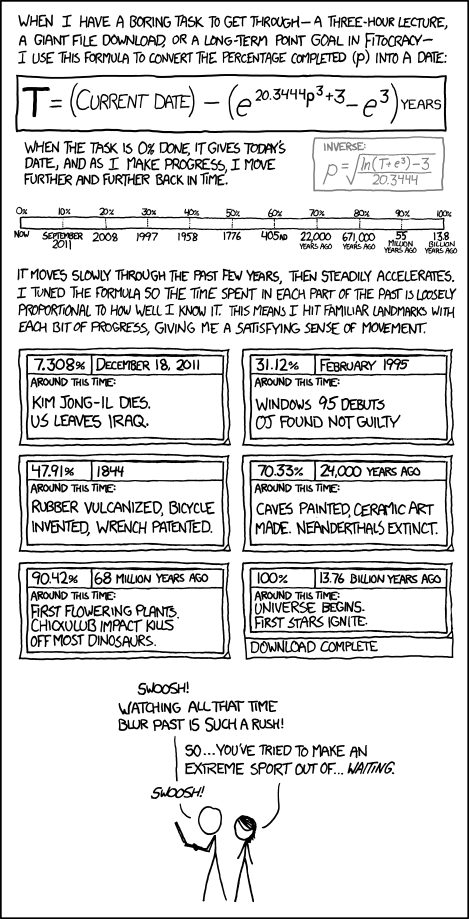 WHEN I HAVE A BORING TASK TO GET THROUGH—A THREE-HOUR LECTURE,
A GIANT FILE DOWNLOAD, OR A LONG-TERM POINT GOAL IN FITOCRACY—
I USE THIS FORMULA TO CONVERT THE PERCENTAGE COMPLETED (P) INTO A DATE:
T = (CURRENT DATE) – (e^20.3444p³+3 – e³) YEARS
WHEN THE TASK IS 0% DONE, IT GIVES TODAY'S
DATE, AND AS I MAKE PROGRESS, I MOVE
FURTHER AND FURTHER BACK IN TIME.
INVERSE:
p = ∛(ln(T+e³)–3 / 20.3444)
0% 10% 20% 30% 40% 50% 60% 70% 80% 90% 100%
NOW SEPTEMBER 2011 2008 1997 1958 1776 405AD 22,000 YEARS AGO 671,000 YEARS AGO 55 MILLION YEARS AGO 13.8 BILLION YEARS AGO
IT MOVES SLOWLY THROUGH THE PAST FEW YEARS, THEN STEADILY ACCELERATES.
I TUNED THE FORMULA SO THE TIME SPENT IN EACH PART OF THE PAST IS LOOSELY
PROPORTIONAL TO HOW WELL I KNOW IT. THIS MEANS I HIT FAMILIAR LANDMARKS WITH
EACH BIT OF PROGRESS, GIVING ME A SATISFYING SENSE OF MOVEMENT.
7.308% DECEMBER 18, 2011
AROUND THIS TIME:
KIM JONG-IL DIES.
US LEAVES IRAQ.
31.12% FEBRUARY 1995
AROUND THIS TIME:
WINDOWS 95 DEBUTS
OJ FOUND NOT GUILTY
47.91% 1844
AROUND THIS TIME:
RUBBER VULCANIZED, BICYCLE
INVENTED, WRENCH PATENTED.
70.33% 24,000 YEARS AGO
AROUND THIS TIME:
CAVES PAINTED, CERAMIC ART
MADE. NEANDERTHALS EXTINCT.
90.42% 68 MILLION YEARS AGO
AROUND THIS TIME:
FIRST FLOWERING PLANTS.
CHIXULUB IMPACT KILLS
OFF MOST DINOSAURS.
100% 13.76 BILLION YEARS AGO
AROUND THIS TIME:
UNIVERSE BEGINS.
FIRST STARS IGNITE.
DOWNLOAD COMPLETE
SWOOSH!
WATCHING ALL THAT TIME
BLUR PAST IS SUCH A RUSH!
SO...YOU'VE TRIED TO MAKE AN
EXTREME SPORT OUT OF... WAITING.
SWOOSH!